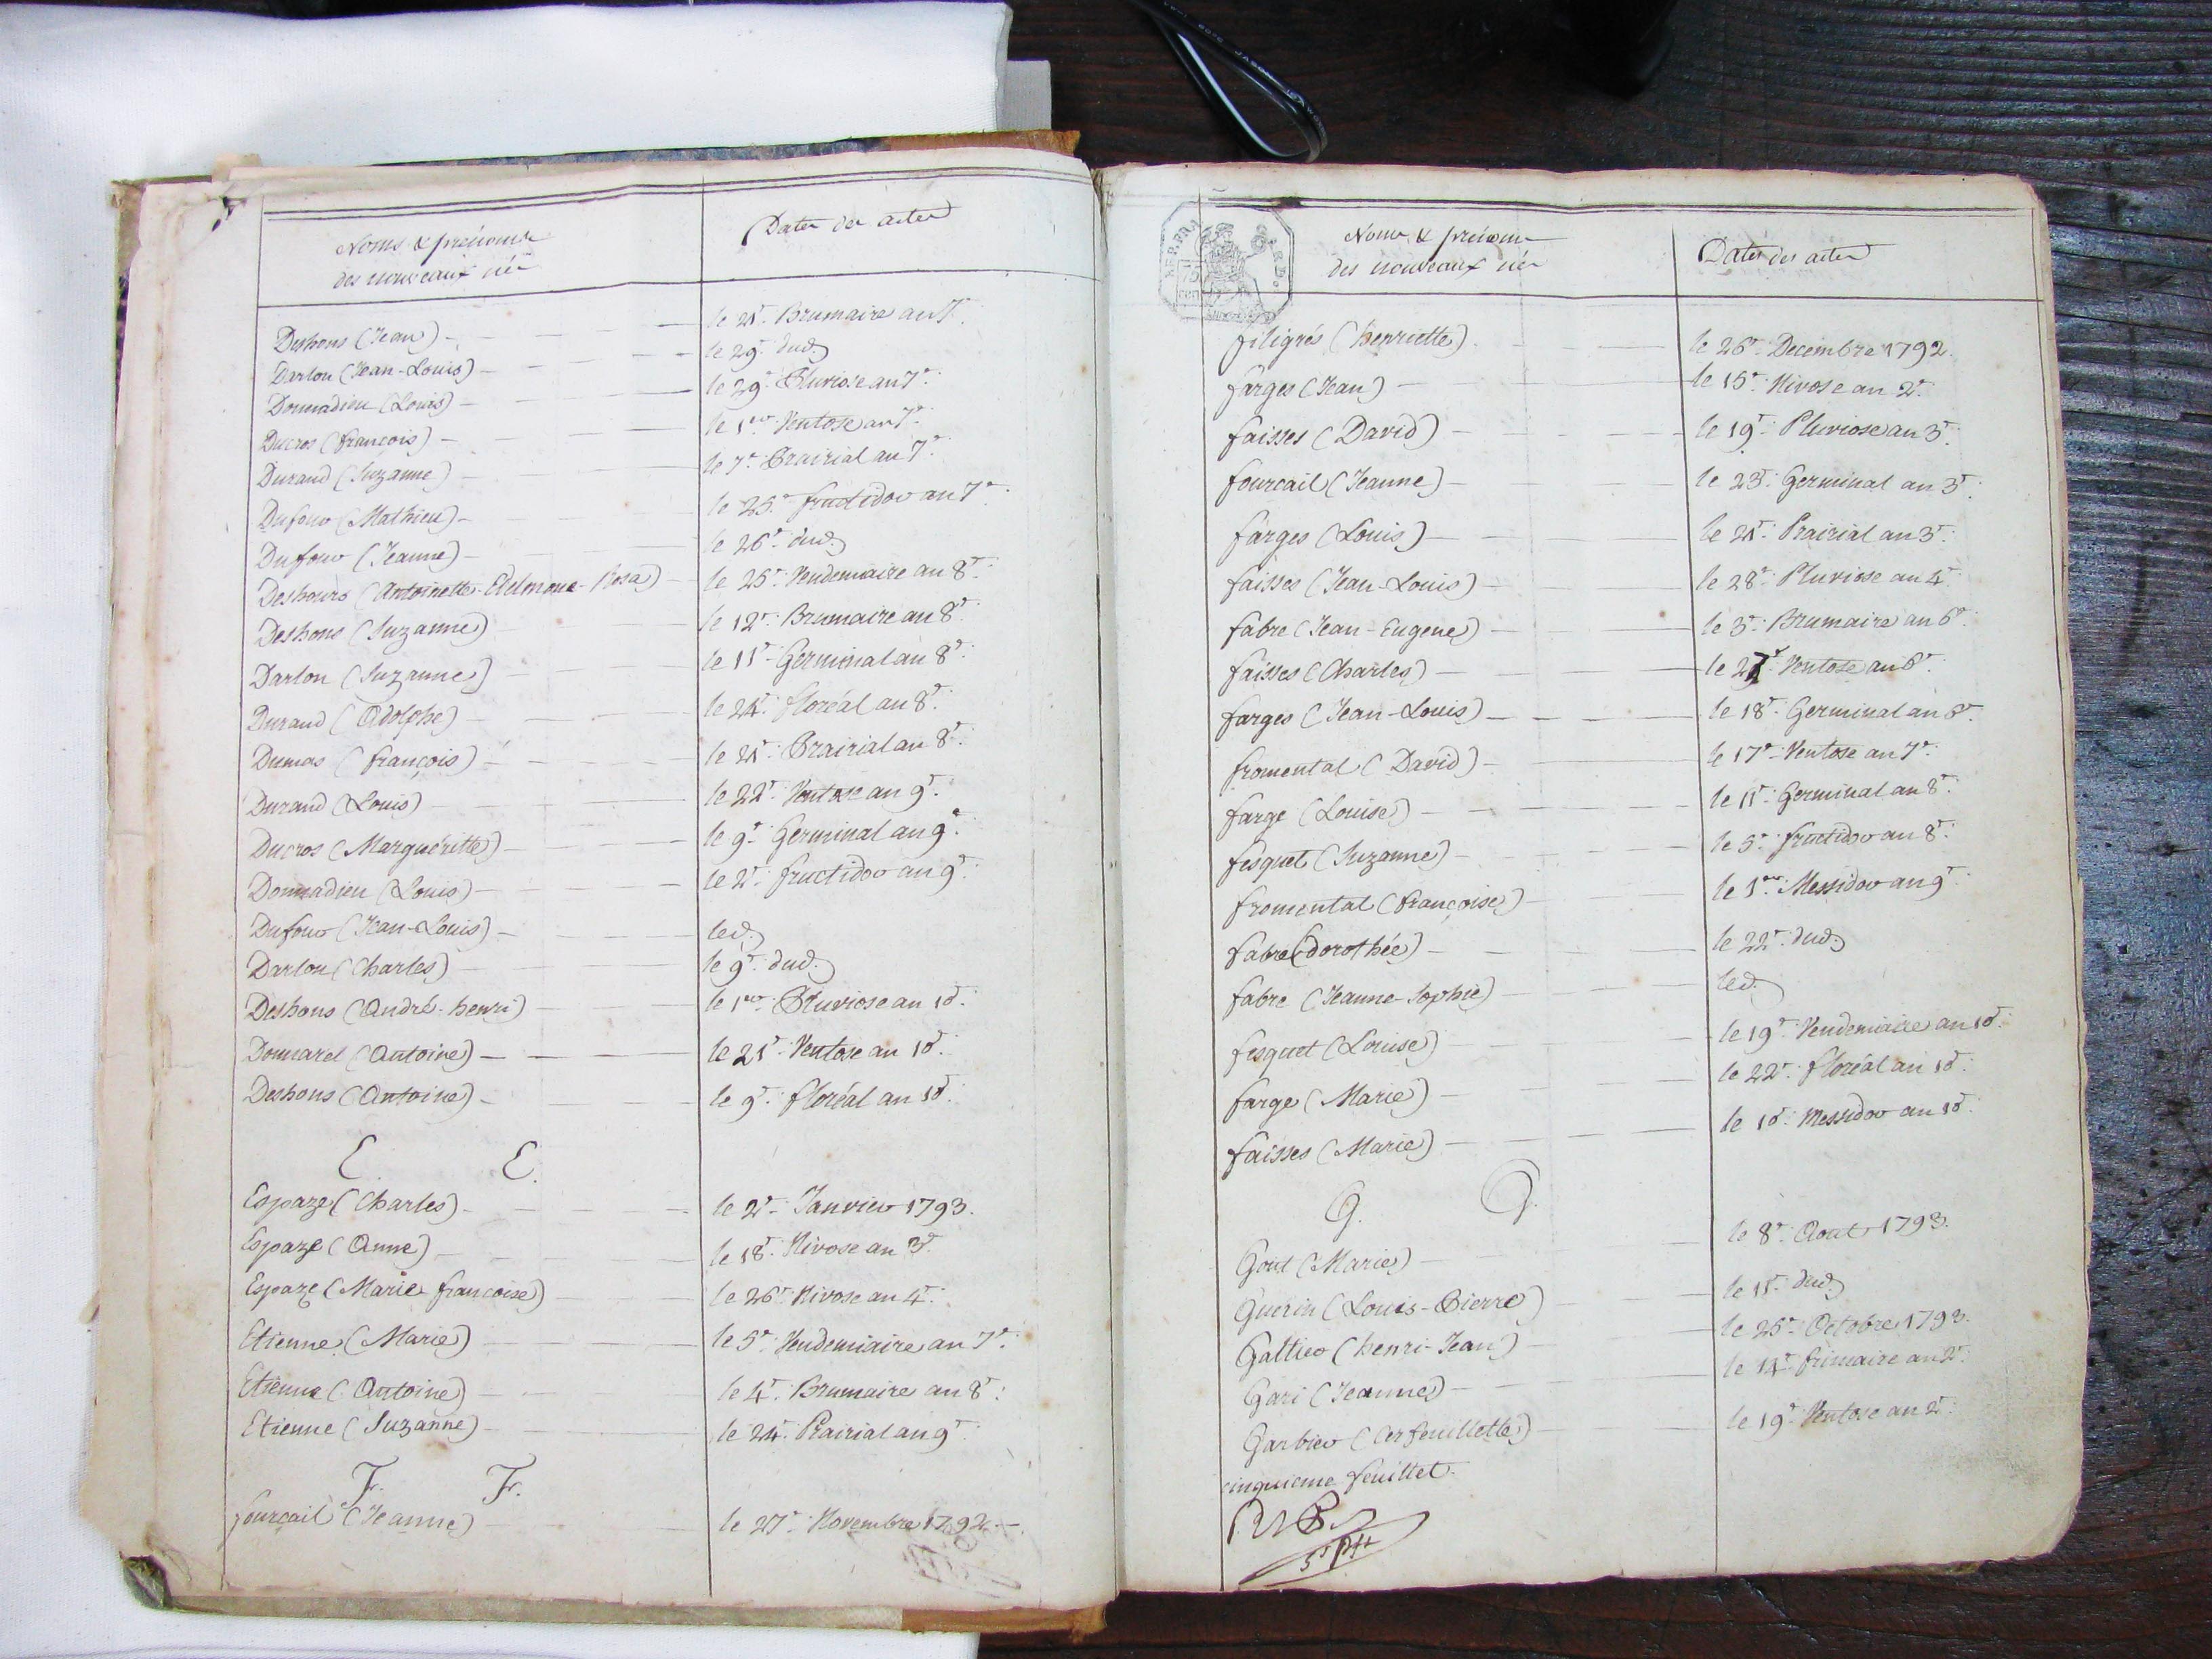 Noms & prénoms
des nouveaux nés
Dates des actes
Deshons (Jean) le 21e. Brumaire an 7e.
Darlon (Jean-Louis) le 29e. dud.
Donnadieu (Louis) le 29e. Pluviose an 7e.
Ducros (françois) le 1er. Ventose an 7e.
Durand (Suzanne) le 7e. Prairial an 7e.
Dufour (Mathieu) le 25e. fructidor an 7e.
Dufour (Jeanne) le 26e. dud.
Deshours (Antoinette-Edelmone-Rosa) le 25e. Vendemaire an 8e.
Deshons (Suzanne) le 12e. Brumaire an 8e.
Darlon (Suzanne) le 11e. Germinal an 8e.
Durand (Adolphe) le 24e. floréal an 8e.
Dumas (françois) le 21e. Prairial an 8e.
Durand (Louis) le 22e. Ventose an 9e.
Ducros (Marguéritte) le 9e. Germinal an 9e.
Donnadieu (Louis) le 2e. fructidor an 9e.
Dufour (Jean-Louis) led.
Darlon (Charles) le 9e. dud.
Deshons (André-henri) le 1er. Pluviose an 10e.
Donnarel (Antoine) le 21e. Ventose an 10e.
Deshons (Antoine) le 9e. floréal an 10e.
E. E.
Espaze (Charles) le 2e. Janvier 1793.
Espaze (Anne) le 18e. Nivose an 3e.
Espaze (Marie françoise) le 26e. Nivose an 4e.
Etienne (Marie) le 5e. Vendemiaire an 7e.
Etienne (Antoine) le 4e. Brumaire an 8e.
Etienne (Suzanne) le 24e. Prairial an 9e.
F. F.
fourcail (Jeanne) le 27e. Novembre 1792.
REP. FRA.
75
cen
Noms & prénoms
des nouveaux nés
Dates des actes
filigrés (henriette) le 26e. Decembre 1792.
farges (Jean) le 15e. Nivose an 2e.
faisses (David) le 19e. Pluviose an 3e.
fourcail (Jeanne) le 23e. Germinal an 3e.
farges (Louis) le 21e. Prairial an 3e.
faisses (Jean-Louis) le 28e. Pluviose an 4e.
fabre (Jean-Eugene) le 3e. Brumaire an 6e.
faisses (Charles) le 27e. Ventose an 6e.
farges (Jean-Louis) le 18e. Germinal an 6e.
fromental (David) le 17e. Ventose an 7e.
farge (Louise) le 11e. Germinal an 8e.
fesquet (Suzanne) le 5e. fructidor an 8e.
fromental (françoise) le 1er. Messidor an 9e.
fabre (dorothée) le 22e. dud.
fabre (Jeanne-Sophie) led.
fesquet (Louise) le 19e. Vendemiaire an 10e.
farge (Marie) le 22e. floréal an 10e.
faisses (Marie) le 10e. Messidor an 10e.
G. G.
Gout (Marie) le 8e. Aout 1793.
Guerin (Louis-Pierre) le 11e. dud.
Galtier (henri-Jean) le 25e. Octobre 1793.
Gari (Jeanne) le 14e. frimaire an 2e.
Garbier (Cerfeuillette) le 19e. Ventose an 2e.
cinquieme feuillet.